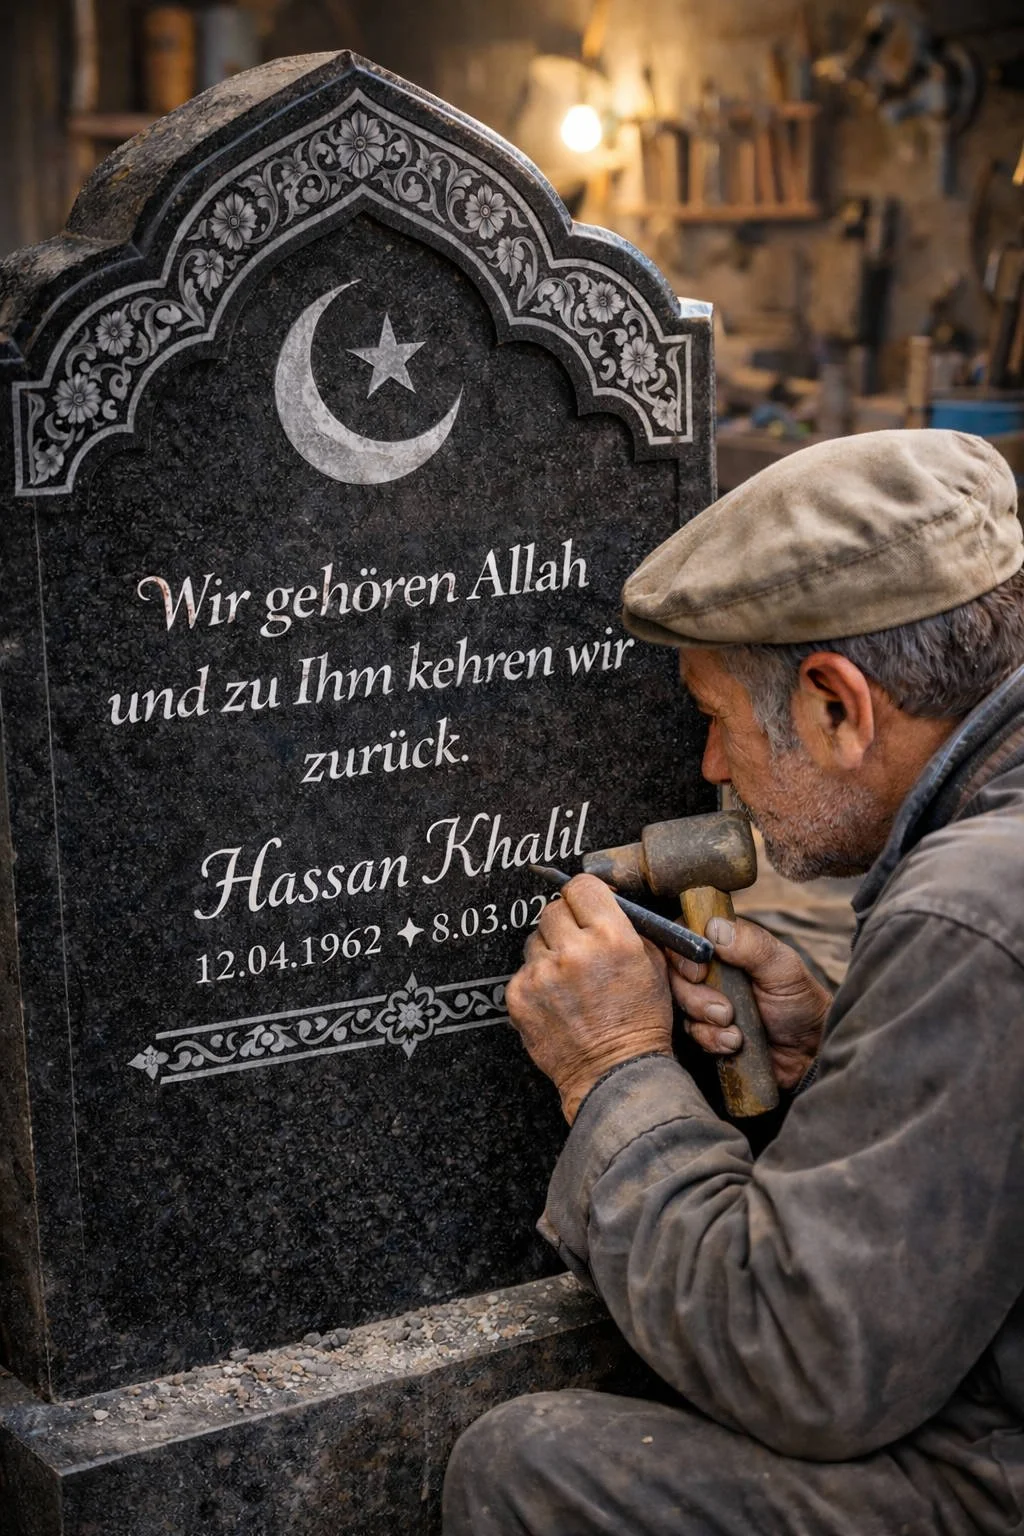 Wir gehören Allah
und zu Ihm kehren wir
zurück.
Hassan Khalil
12.04.1962 ✦ 8.03.02